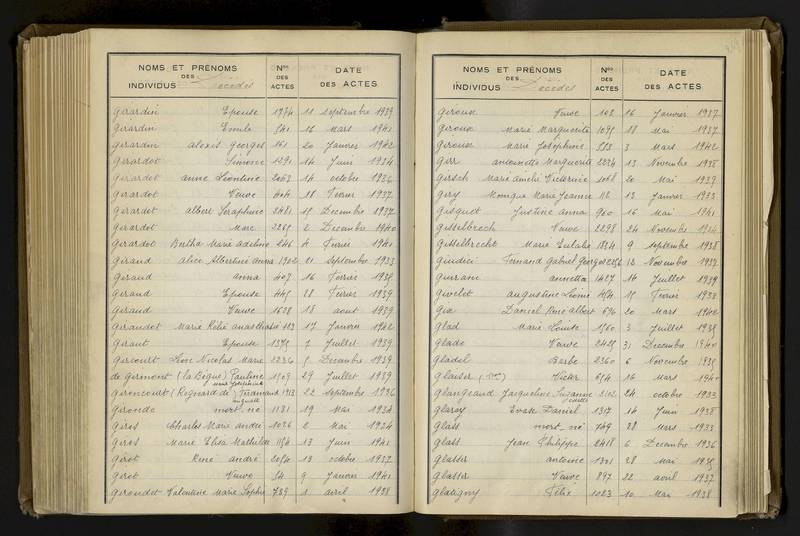 NOMS ET PRÉNOMS DES INDIVIDUS Décédés Nos DES ACTES DATE DES ACTES
Girardin Epouse 1774 11 septembre 1939
Girardin Emile 541 16 Mars 1941
Girardin alexis Georges 161 20 Janvier 1942
Girardot Simone 1291 14 Juin 1934
Girardot anne Léontine 2063 14 octobre 1936
Girardot Veuve 404 18 Fevrier 1937
Girardot albert Seraphine 2481 15 Decembre 1937
Girardot Marc 3265 2 Decembre 1940
Girardot Bertha Marie adeline 246 4 Fevrier 1941
Giraud alice Albertine anna 1902 21 septembre 1933
Giraud anna 407 16 Fevrier 1938
Giraud Epouse 445 28 Fevrier 1939
Giraud Veuve 1658 18 aout 1939
Giraudot Marie Rélie anasthasie 123 17 Janvier 1942
Giraut Epouse 1375 7 Juillet 1939
Gircourt Léon Nicolas Marie 2236 5 Decembre 1939
de Girmont (la Bègue) Pauline Marie Joséphine 1509 29 Juillet 1939
Gironcourt (Reginard de) Firamand auguste 1913 22 septembre 1936
Gironde mort né 1181 19 Mai 1934
Giros Charles Marie andré 1026 2 Mai 1934
Giros Marie Elisa Mathilde 1154 13 Juin 1941
Girot René andré 2054 13 octobre 1937
Girot Veuve 54 9 Janvier 1941
Giroudet Valentine Marie Sophie 739 1 avril 1938
NOMS ET PRÉNOMS DES INDIVIDUS Décédés Nos DES ACTES DATE DES ACTES
Giroux Veuve 102 16 Janvier 1937
Giroux Marie Marguerite 1095 18 Mai 1937
Giroux Marie Joséphine 553 3 Mars 1942
Girr antoinette Marguerite 2234 13 Novembre 1938
Girsch Marie Amélie Victorine 1068 20 Mai 1939
Giry Monique Marie Jeanne 112 13 Janvier 1933
Gisquet Justine anna 960 16 Mai 1941
Gisselbrech Veuve 2298 24 Novembre 1934
Gisselbrecht Marie Eulalie 1834 9 septembre 1938
Giudici Fernand Gabriel Georges 2256 12 Novembre 1937
Giurranc annetta 1427 14 Juillet 1939
Givelet augustine Léonie 454 15 Fevrier 1933
Gix Daniel Pino albert 696 20 Mars 1942
Glad Marie Louise 1560 3 Juillet 1935
Glade Veuve 2425 31 Decembre 1940
Gladel Barbe 2360 6 Novembre 1935
Glaiser Victor 654 16 Mars 1940
Glangeaud Jacqueline Suzanne 2102 24 octobre 1933
Glaroy Evode Daniel 1317 14 Juin 1938
Glass mort né 749 28 Mars 1933
Glass Jean Philippe 2418 6 Decembre 1936
Glasser antoine 1301 28 Mai 1935
Glasser Veuve 897 22 avril 1937
Glatigny Félix 1023 10 Mai 1938